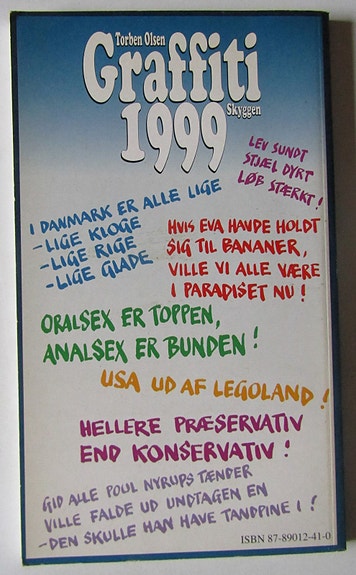 Torben Olsen
Graffiti
Skyggen
1999
LEV SUNDT
STJÆL DYRT
LØB STÆRKT!
I DANMARK ER ALLE LIGE
-LIGE KLOGE
-LIGE RIGE
-LIGE GLADE
HVIS EVA HAVDE HOLDT
SIG TIL BANANER,
VILLE VI ALLE VÆRE
I PARADISET NU!
ORALSEX ER TOPPEN,
ANALSEX ER BUNDEN!
USA UD AF LEGOLAND!
HELLERE PRÆSERVATIV
END KONSERVATIV!
GID ALLE POUL NYRUPS TÆNDER
VILLE FALDE UD UNDTAGEN EN
-DEN SKULLE HAN HAVE TANDPINE I!
ISBN 87-89012-41-0